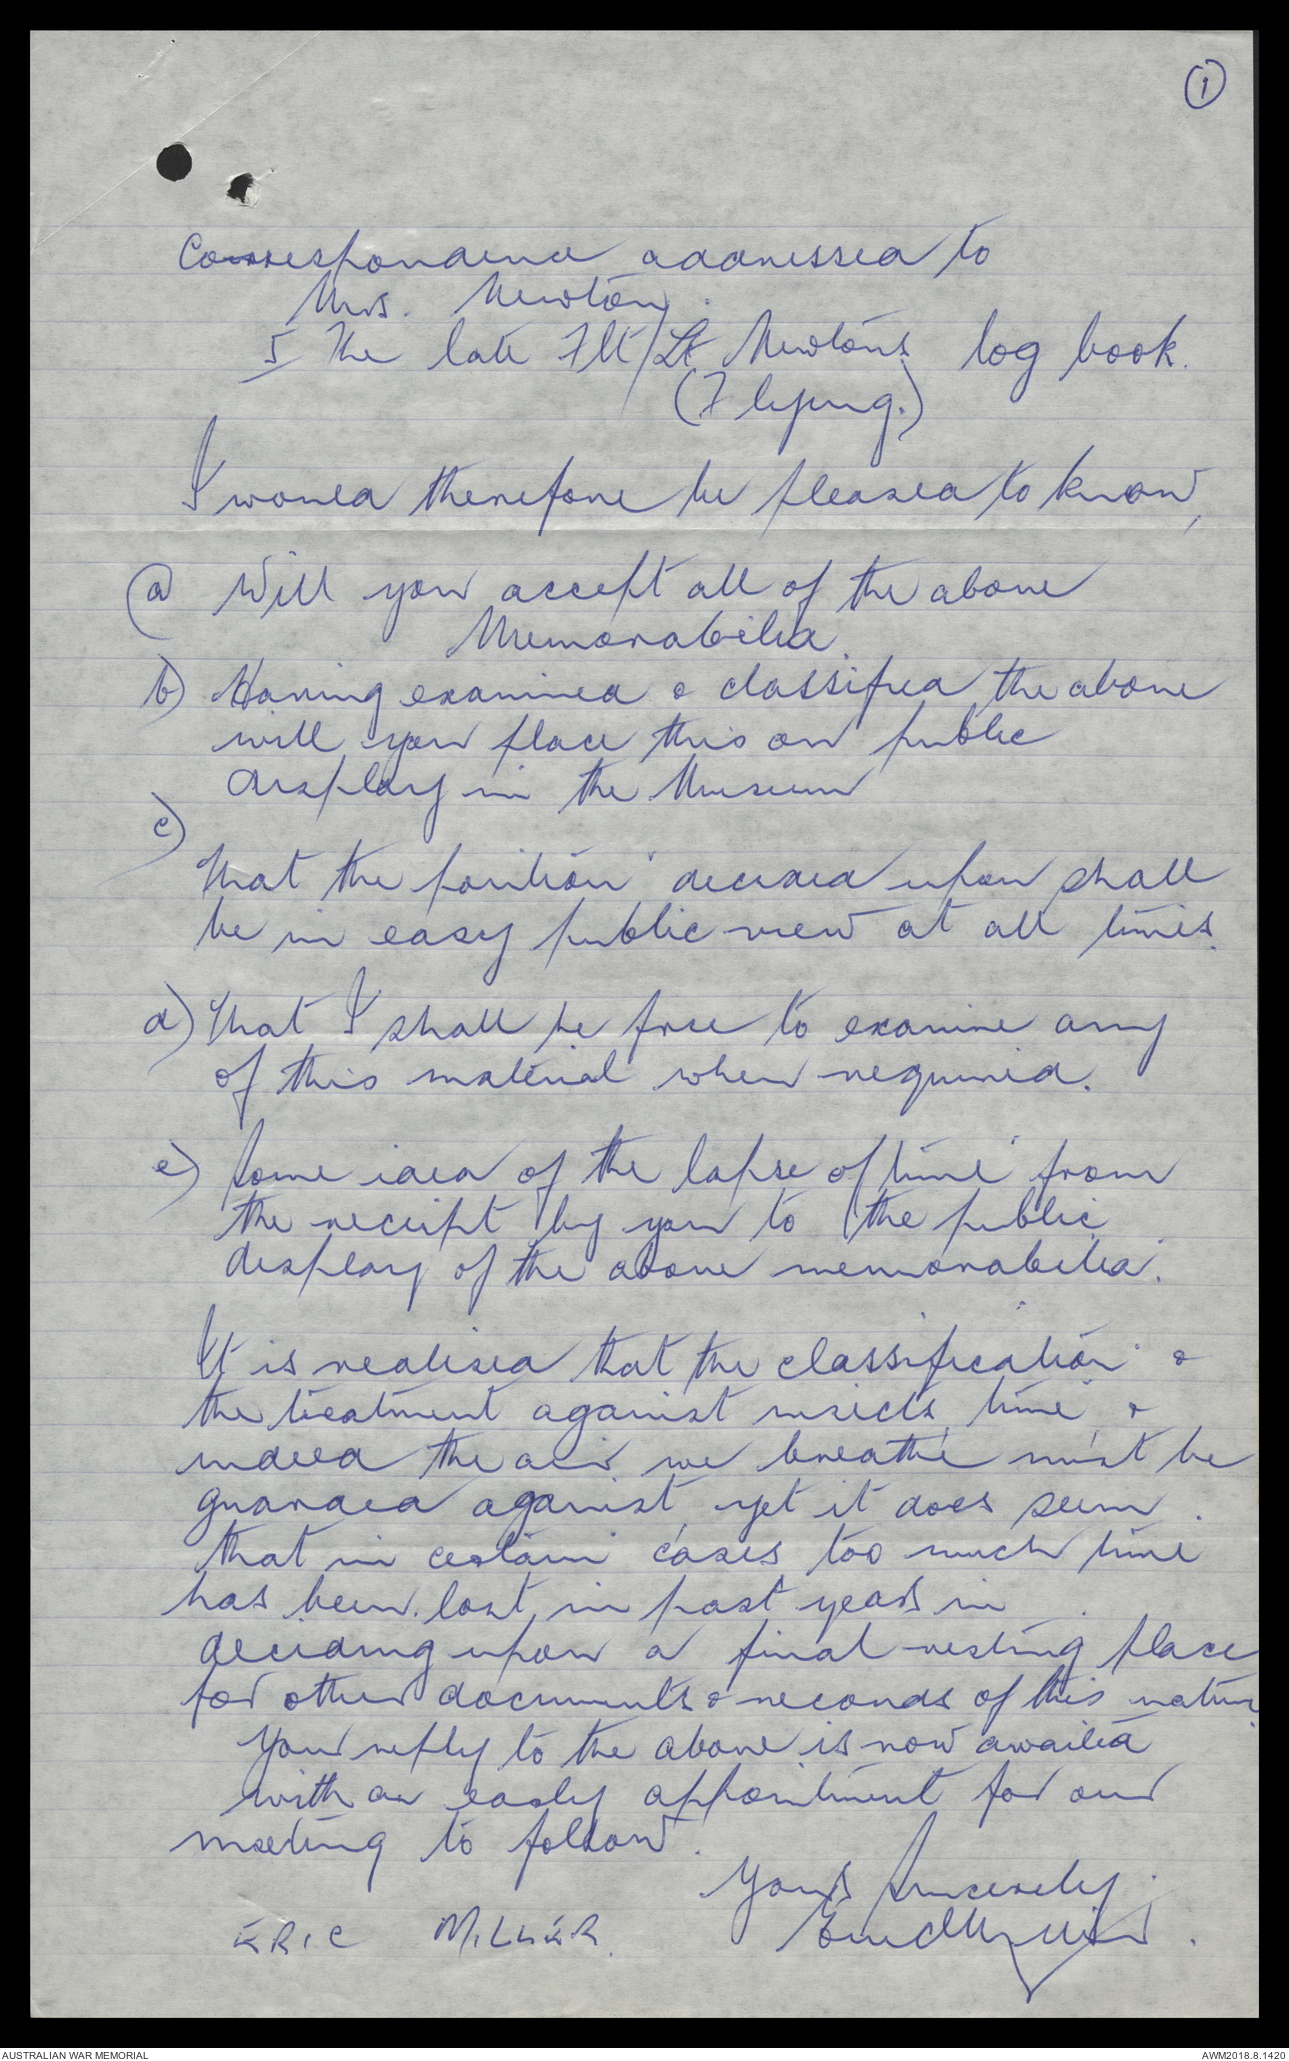 1
Correspondence addressed to
Mrs. Newton.
5 The late Flt/Lt Newton's log book.
(Flying.)
I would therefore be pleased to know,
a) Will you accept all of the above
Memorabilia.
b) Having examined & classified the above
will you place this on public
display in the Museum
c)
That the position decided upon shall
be in easy public view at all times.
d) That I shall be free to examine any
of this material when required.
e) Some idea of the lapse of time from
the receipt by you to the public
display of the above memorabilia.
It is realised that the classification &
the treatment against insects, time &
indeed the air we breathe must be
guarded against, yet it does seem
that in certain cases too much time
has been lost in past years in
deciding upon a final resting place
for other documents & records of this nature.
Your reply to the above is now awaited
with an early appointment for our
meeting to follow.
Yours Sincerely.
ERIC MILLER. Eric Miller.
AUSTRALIAN WAR MEMORIAL
AWM2018.8.1420